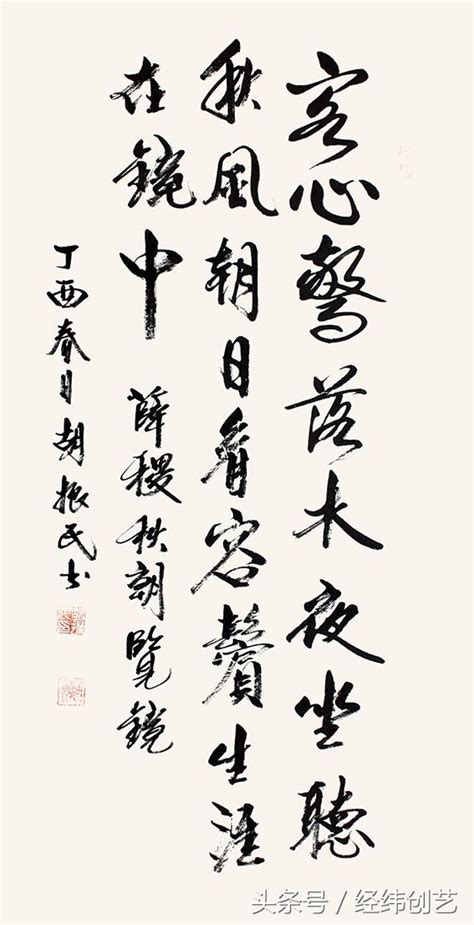 客心驚落木夜坐聽
秋風朝日看容鬢生涯
在鏡中 薛稷秋朝覽鏡
丁酉春月胡振民书
头条号／经纬创艺